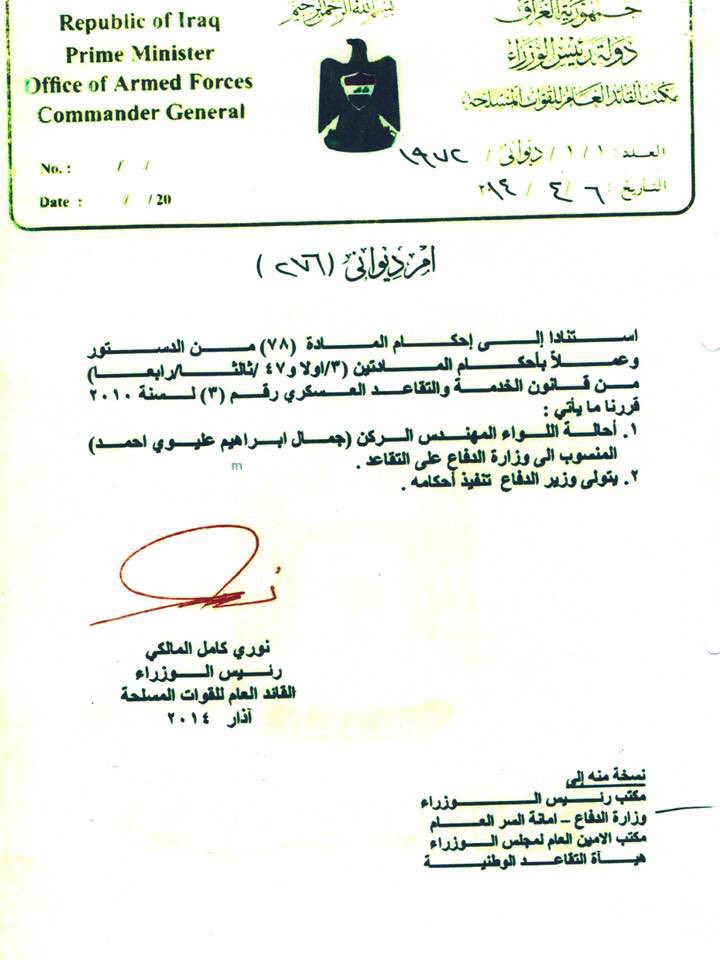 Republic of Iraq
Prime Minister
Office of Armed Forces
Commander General
No. : / /
Date : / / 20
بسم الله الرحمن الرحيم
جمهورية العراق
دولة رئيس الوزراء
مكتب القائد العام للقوات المسلحة
العدد : ١ / ١ / ديواني / ١٩٧٢
التاريخ : ٦ / ٤ / ٢٠١٤
امر ديواني (٢٧٦)
استنادا إلى إحكام المادة (٧٨) من الدستور
وعملاً بأحكام المادتين (٣/اولا و٤٧ /ثالثا/رابعا)
من قانون الخدمة والتقاعد العسكري رقم (٣) لسنة ٢٠١٠
قررنا ما يأتي :
١. أحالة اللواء المهندس الركن (جمال ابراهيم عليوي احمد)
المنسوب الى وزارة الدفاع على التقاعد .
m
٢. يتولى وزير الدفاع تنفيذ أحكامه .
نوري كامل المالكي
رئيس الوزراء
القائد العام للقوات المسلحة
آذار ٢٠١٤
نسخة منه إلى
مكتب رئيس الوزراء
وزارة الدفاع – امانة السر العام
مكتب الامين العام لمجلس الوزراء
هيأة التقاعد الوطنية